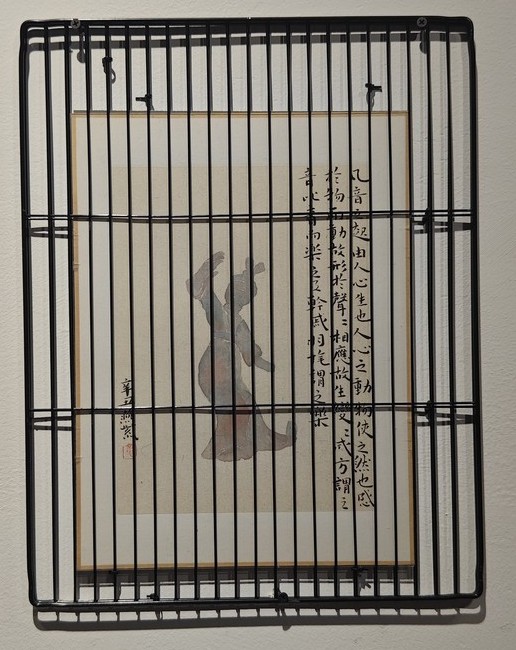 凡音之起由人心生也人心之動物使之然也感
於物而動故形於聲〻相應故生變〻成方謂之
音比音而樂之及幹戚羽旄謂之樂
辛丑燕紫